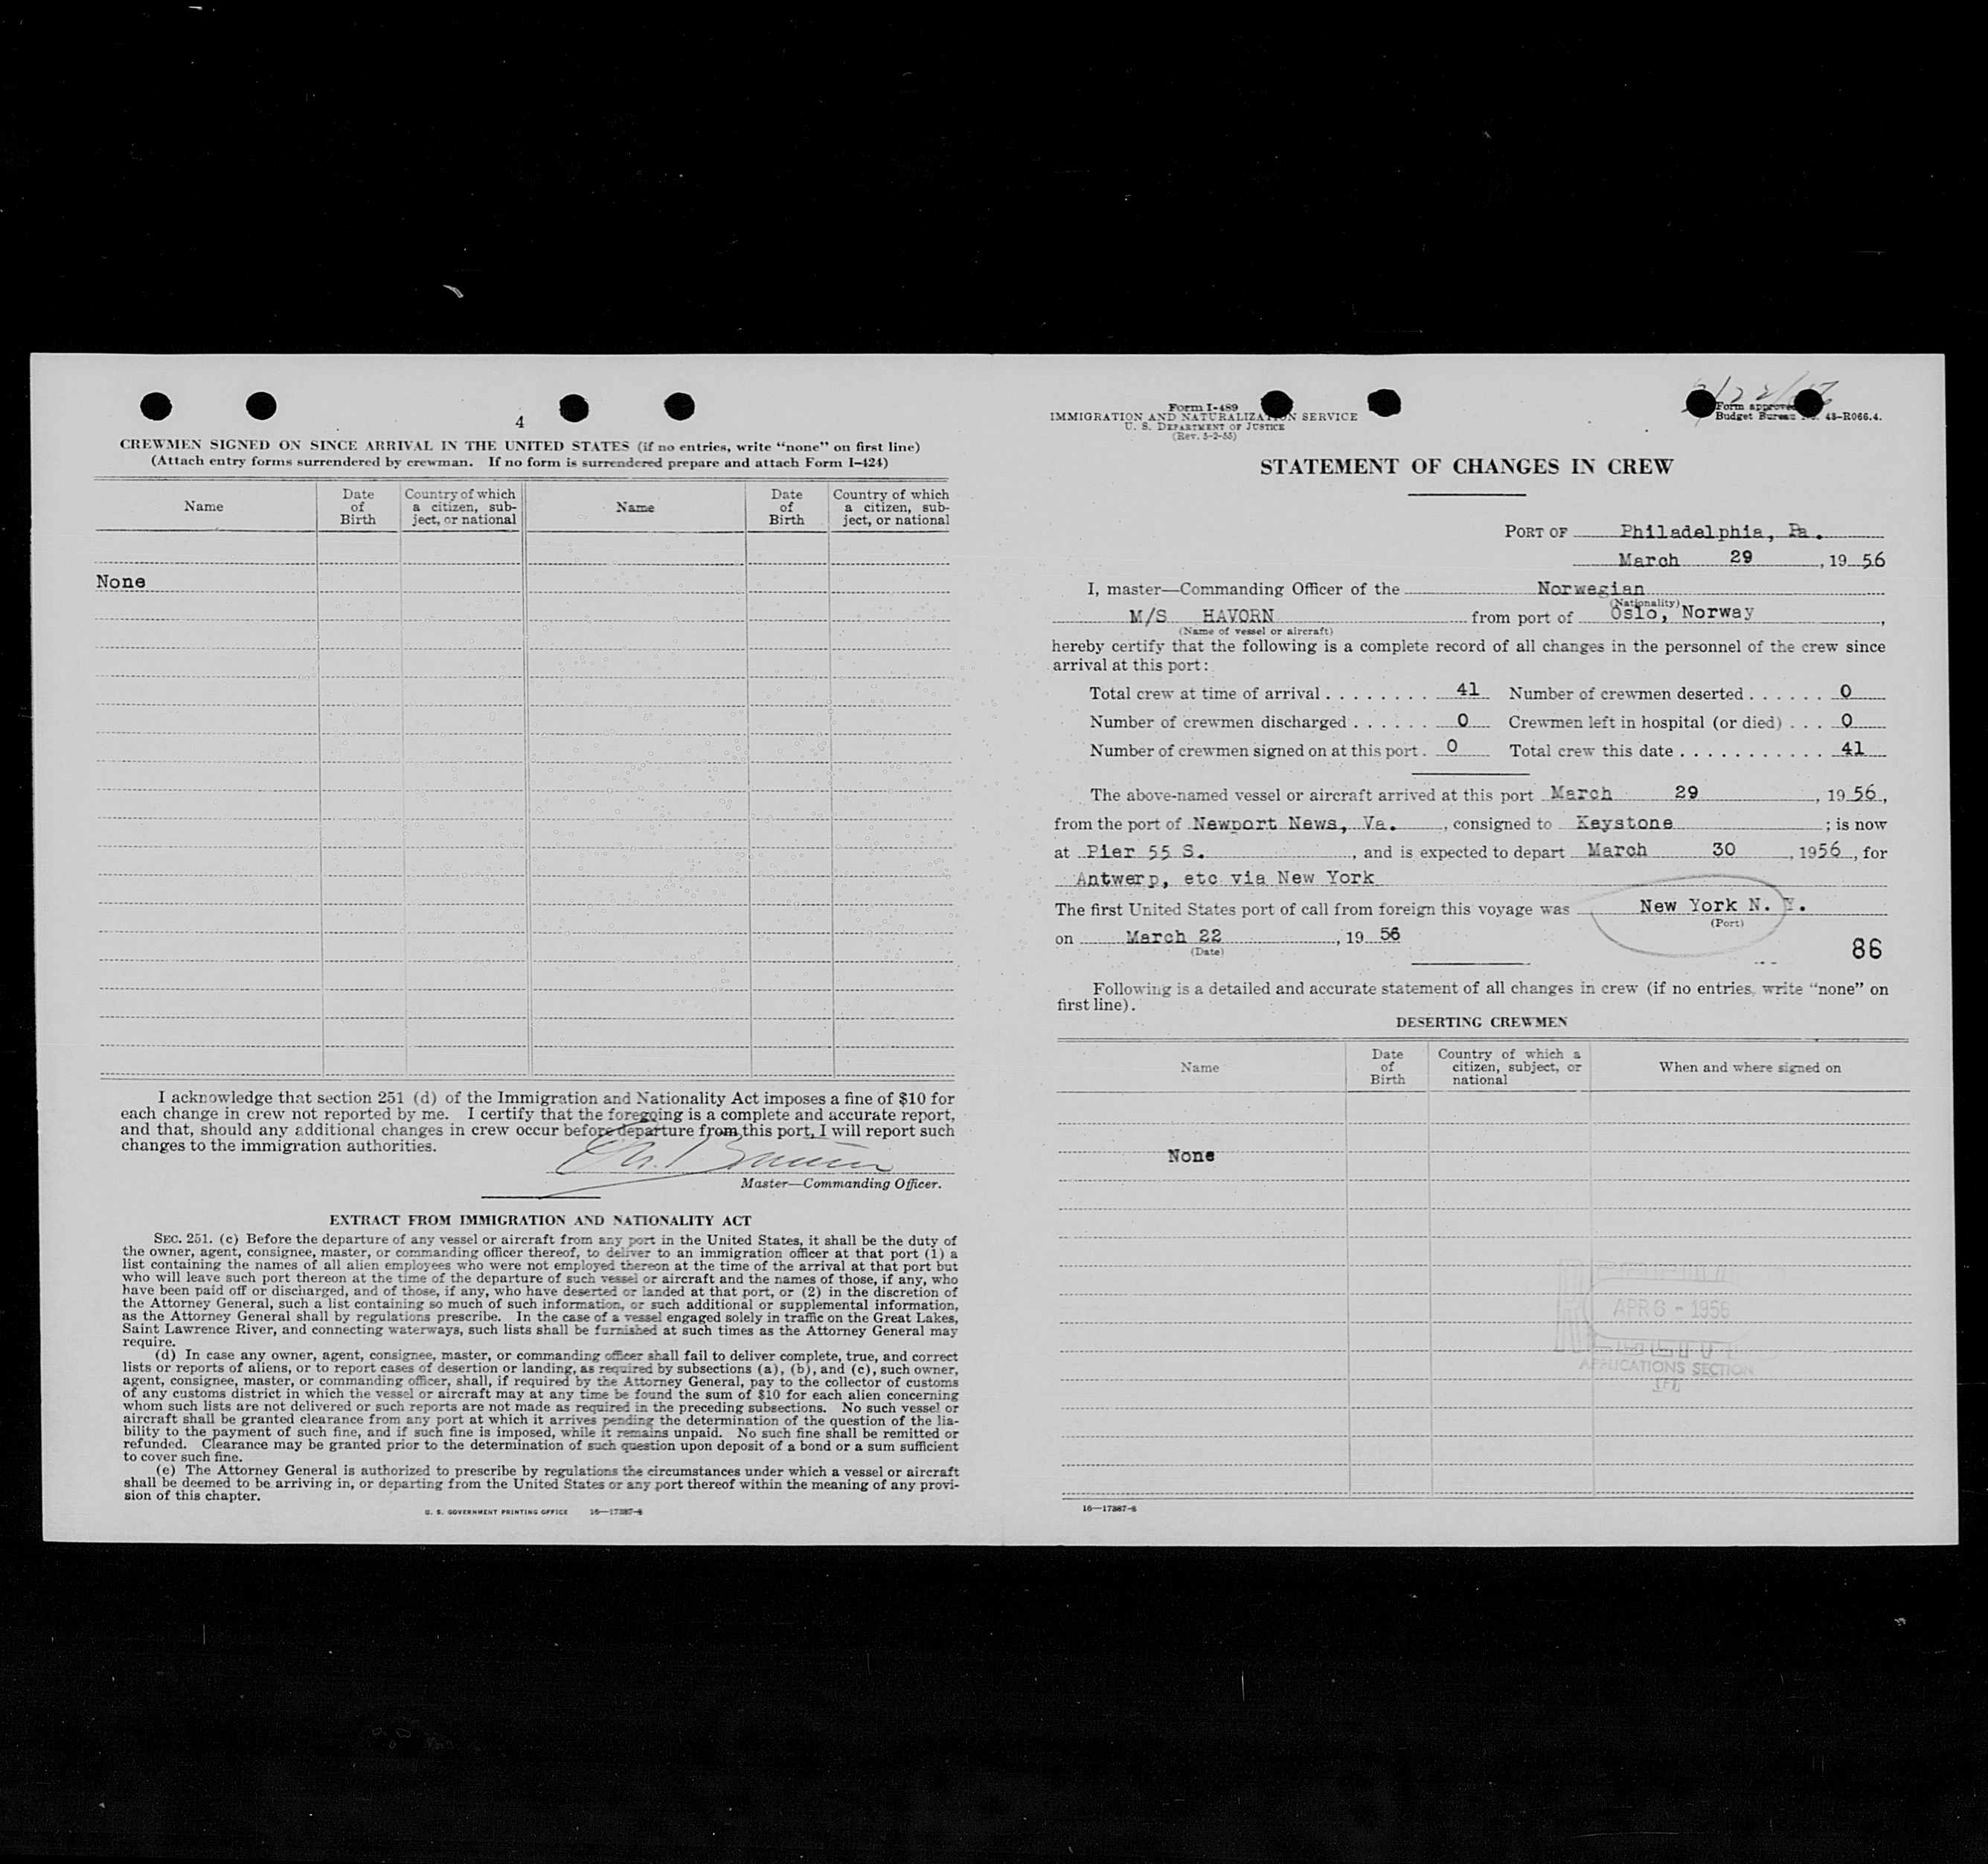 4
CREWMEN SIGNED ON SINCE ARRIVAL IN THE UNITED STATES (if no entries, write “none” on first line)
(Attach entry forms surrendered by crewman. If no form is surrendered prepare and attach Form I–424)
Name
Date of Birth
Country of which a citizen, sub-
ject, or national
Name
Date of Birth
Country of which a citizen, sub-
ject, or national
None
I acknowledge that section 251 (d) of the Immigration and Nationality Act imposes a fine of $10 for
each change in crew not reported by me. I certify that the foregoing is a complete and accurate report,
and that, should any additional changes in crew occur before departure from this port, I will report such
changes to the immigration authorities.
Master—Commanding Officer.
EXTRACT FROM IMMIGRATION AND NATIONALITY ACT
SEC. 251. (c) Before the departure of any vessel or aircraft from any port in the United States, it shall be the duty of
the owner, agent, consignee, master, or commanding officer thereof, to deliver to an immigration officer at that port (1) a
list containing the names of all alien employees who were not employed thereon at the time of the arrival at that port but
who will leave such port thereon at the time of the departure of such vessel or aircraft and the names of those, if any, who
have been paid off or discharged, and of those, if any, who have deserted or landed at that port, or (2) in the discretion of
the Attorney General, such a list containing so much of such information, or such additional or supplemental information,
as the Attorney General shall by regulations prescribe. In the case of a vessel engaged solely in traffic on the Great Lakes,
Saint Lawrence River, and connecting waterways, such lists shall be furnished at such times as the Attorney General may
require.
(d) In case any owner, agent, consignee, master, or commanding officer shall fail to deliver complete, true, and correct
lists or reports of aliens, or to report cases of desertion or landing, as required by subsections (a), (b), and (c), such owner,
agent, consignee, master, or commanding officer, shall, if required by the Attorney General, pay to the collector of customs
of any customs district in which the vessel or aircraft may at any time be found the sum of $10 for each alien concerning
whom such lists are not delivered or such reports are not made as required in the preceding subsections. No such vessel or
aircraft shall be granted clearance from any port at which it arrives pending the determination of the question of the lia-
bility to the payment of such fine, and if such fine is imposed, while it remains unpaid. No such fine shall be remitted or
refunded. Clearance may be granted prior to the determination of such question upon deposit of a bond or a sum sufficient
to cover such fine.
(e) The Attorney General is authorized to prescribe by regulations the circumstances under which a vessel or aircraft
shall be deemed to be arriving in, or departing from the United States or any port thereof within the meaning of any provi-
sion of this chapter.
U. S. GOVERNMENT PRINTING OFFICE 16—17387-8
Form I-489
IMMIGRATION AND NATURALIZATION SERVICE
U. S. DEPARTMENT OF JUSTICE
(Rev. 5-2-55)
Form approved
Budget Bureau No. 43-R066.4.
STATEMENT OF CHANGES IN CREW
PORT OF Philadelphia, Pa.
March 29, 1956
I, master—Commanding Officer of the Norwegian
(Nationality)
M/S HAVORN from port of Oslo, Norway,
(Name of vessel or aircraft)
hereby certify that the following is a complete record of all changes in the personnel of the crew since
arrival at this port:
Total crew at time of arrival 41 Number of crewmen deserted 0
Number of crewmen discharged 0 Crewmen left in hospital (or died) 0
Number of crewmen signed on at this port 0 Total crew this date 41
The above-named vessel or aircraft arrived at this port March 29, 1956,
from the port of Newport News, Va., consigned to Keystone; is now
at Pier 55 S., and is expected to depart March 30, 1956, for
Antwerp, etc via New York
The first United States port of call from foreign this voyage was New York N. Y.
(Port)
on March 22, 19 56
(Date)
86
Following is a detailed and accurate statement of all changes in crew (if no entries, write “none” on
first line).
DESERTING CREWMEN
Name
Date of Birth
Country of which a citizen, subject, or national
When and where signed on
None
APR 6 - 1956
APPLICATIONS SECTION
16—17387-8